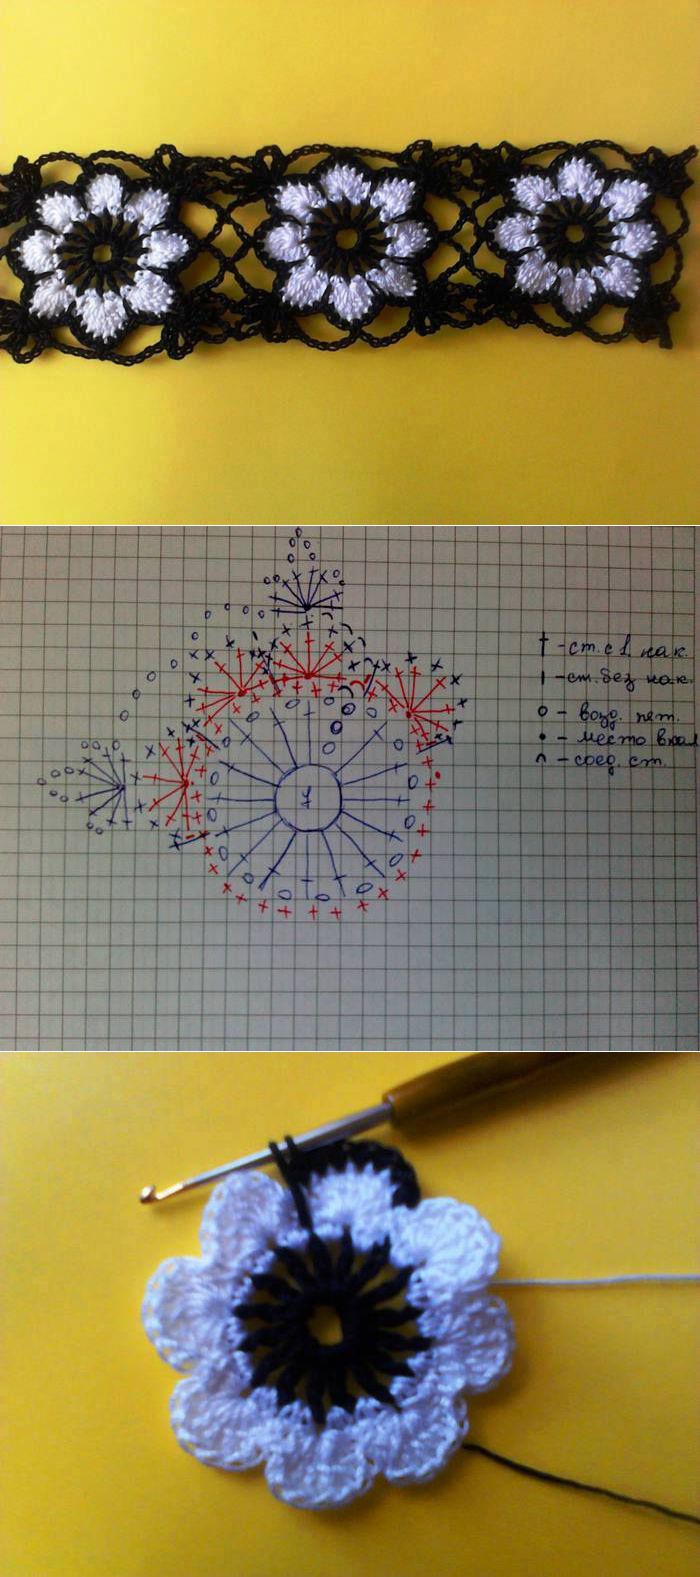 † - ст. с 1 нак.
ı - ст. без нак.
o - возд. пет.
• - место вкол
∩ - соед. ст.
1